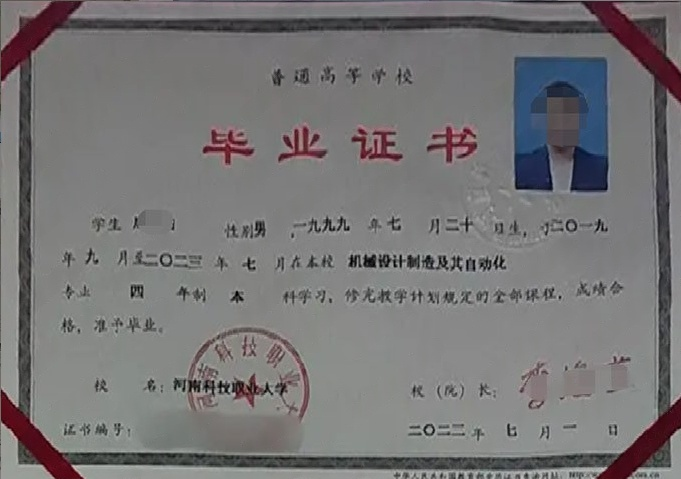 普通高等学校
毕业证书
学生 性别男，一九九九年七月二十日生，于二〇一九
年九月至二〇二三年七月在本校 机械设计制造及其自动化
专业 四 年制 本 科学习，修完教学计划规定的全部课程，成绩合
格，准予毕业。
河南科技职业大
校 名：河南科技职业大学
校（院）长：
证书编号：
二〇二二年七月一日
中华人民共和国教育部学历证书查询网址：